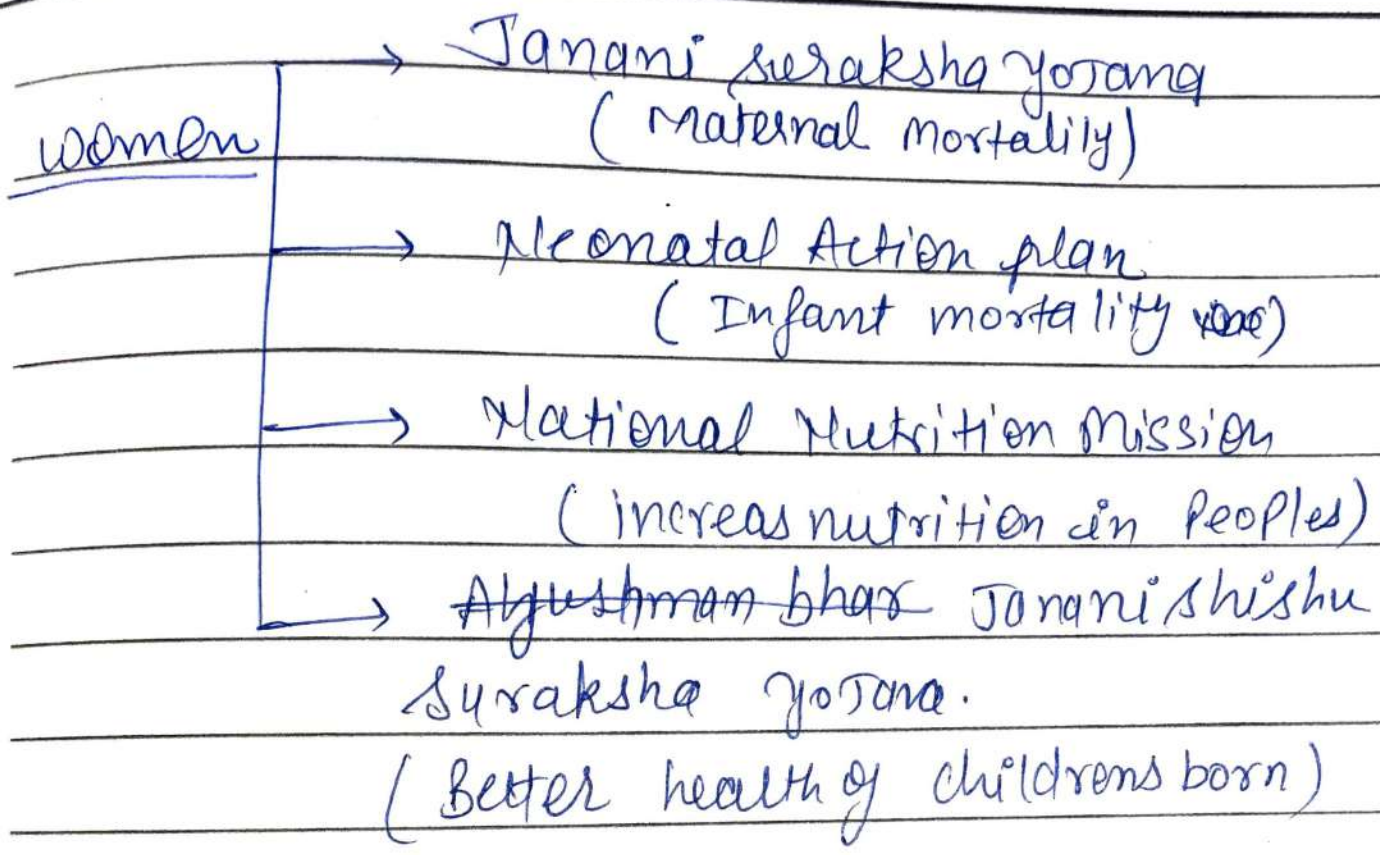 Janani suraksha yojana
women
(Maternal Mortalily)
Neonatal Action plan
(Infant mortality)
National Nutrition Mission
(increas nutrition in Peoples)
Ayushman bhar Janani shishu
suraksha yojana.
(Better health of childrens born)